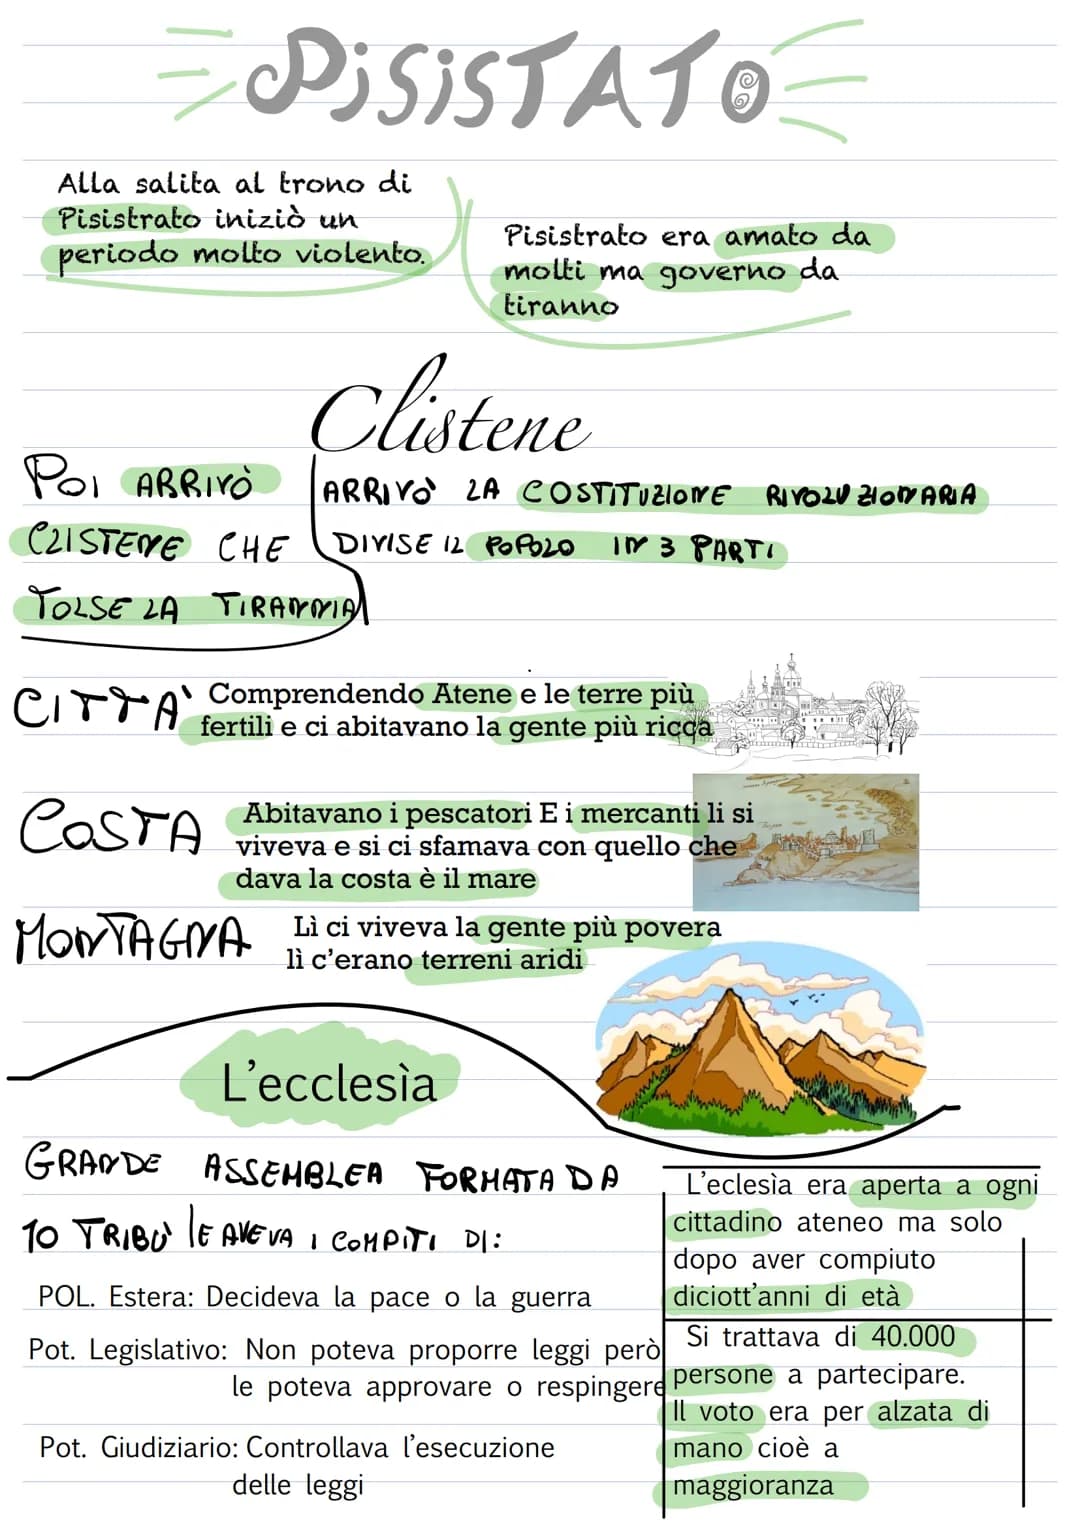 PiSiSTATO
Alla salita al trono di
Pisistrato iniziò un
periodo molto violento.
Pisistrato era amato da
molti ma governo da
tiranno
Clistene
POI ARRIVÒ
CLISTENE CHE
TOLSE LA TIRANNIA
ARRIVÒ LA COSTITUZIONE RIVOLUZIONARIA
DIVISE IL POPOLO IN 3 PARTI
CITTA'
Comprendendo Atene e le terre più
fertili e ci abitavano la gente più ricca
COSTA
Abitavano i pescatori E i mercanti li si
viveva e si ci sfamava con quello che
dava la costa è il mare
MONTAGNA
Lì ci viveva la gente più povera
lì c'erano terreni aridi
L'ecclesìa
GRANDE ASSEMBLEA FORMATA DA
10 TRIBÙ E AVEVA I COMPITI DI:
POL. Estera: Decideva la pace o la guerra
Pot. Legislativo: Non poteva proporre leggi però
le poteva approvare o respingere
Pot. Giudiziario: Controllava l'esecuzione
delle leggi
L'eclesìa era aperta a ogni
cittadino ateneo ma solo
dopo aver compiuto
diciott'anni di età
Si trattava di 40.000
persone a partecipare.
Il voto era per alzata di
mano cioè a
maggioranza